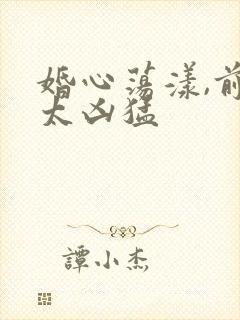 婚心荡漾,前
太凶猛
譚小杰